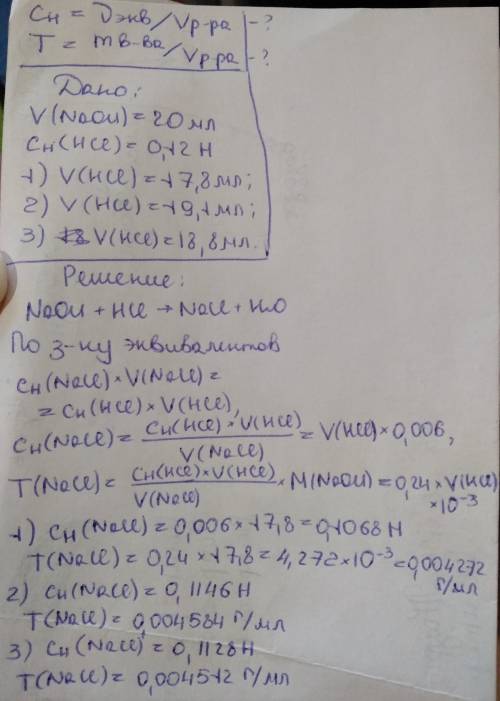 Cн = νэкв/Vр-ра -?
T = mв-ва/Vр-ра -?
Дано:
V(NaOH) = 20 мл
Cн(HCl) = 0,12 H
1) V(HCl) = 17,8 мл;
2) V(HCl) = 19,1 мл;
3) V(HCl) = 18,8 мл.
Решение:
NaOH + HCl → NaCl + H2O
По з-ну эквивалентов
Cн(NaCl) × V(NaCl) =
= Cн(HCl) × V(HCl),
Cн(NaCl) = Cн(HCl) × V(HCl) / V(NaCl) = V(HCl) × 0,006,
T(NaCl) = Cн(HCl) × V(HCl) / V(NaCl) × M(NaOH) = 0,24 × V(HCl)
× 10⁻³
1) Cн(NaCl) = 0,006 × 17,8 = 0,1068 H
T(NaCl) = 0,24 × 17,8 = 4,272 × 10⁻³ = 0,004272
г/мл
2) Cн(NaCl) = 0,1146 H
T(NaCl) = 0,004584 г/мл
3) Cн(NaCl) = 0,1128 H
T(NaCl) = 0,004512 г/мл